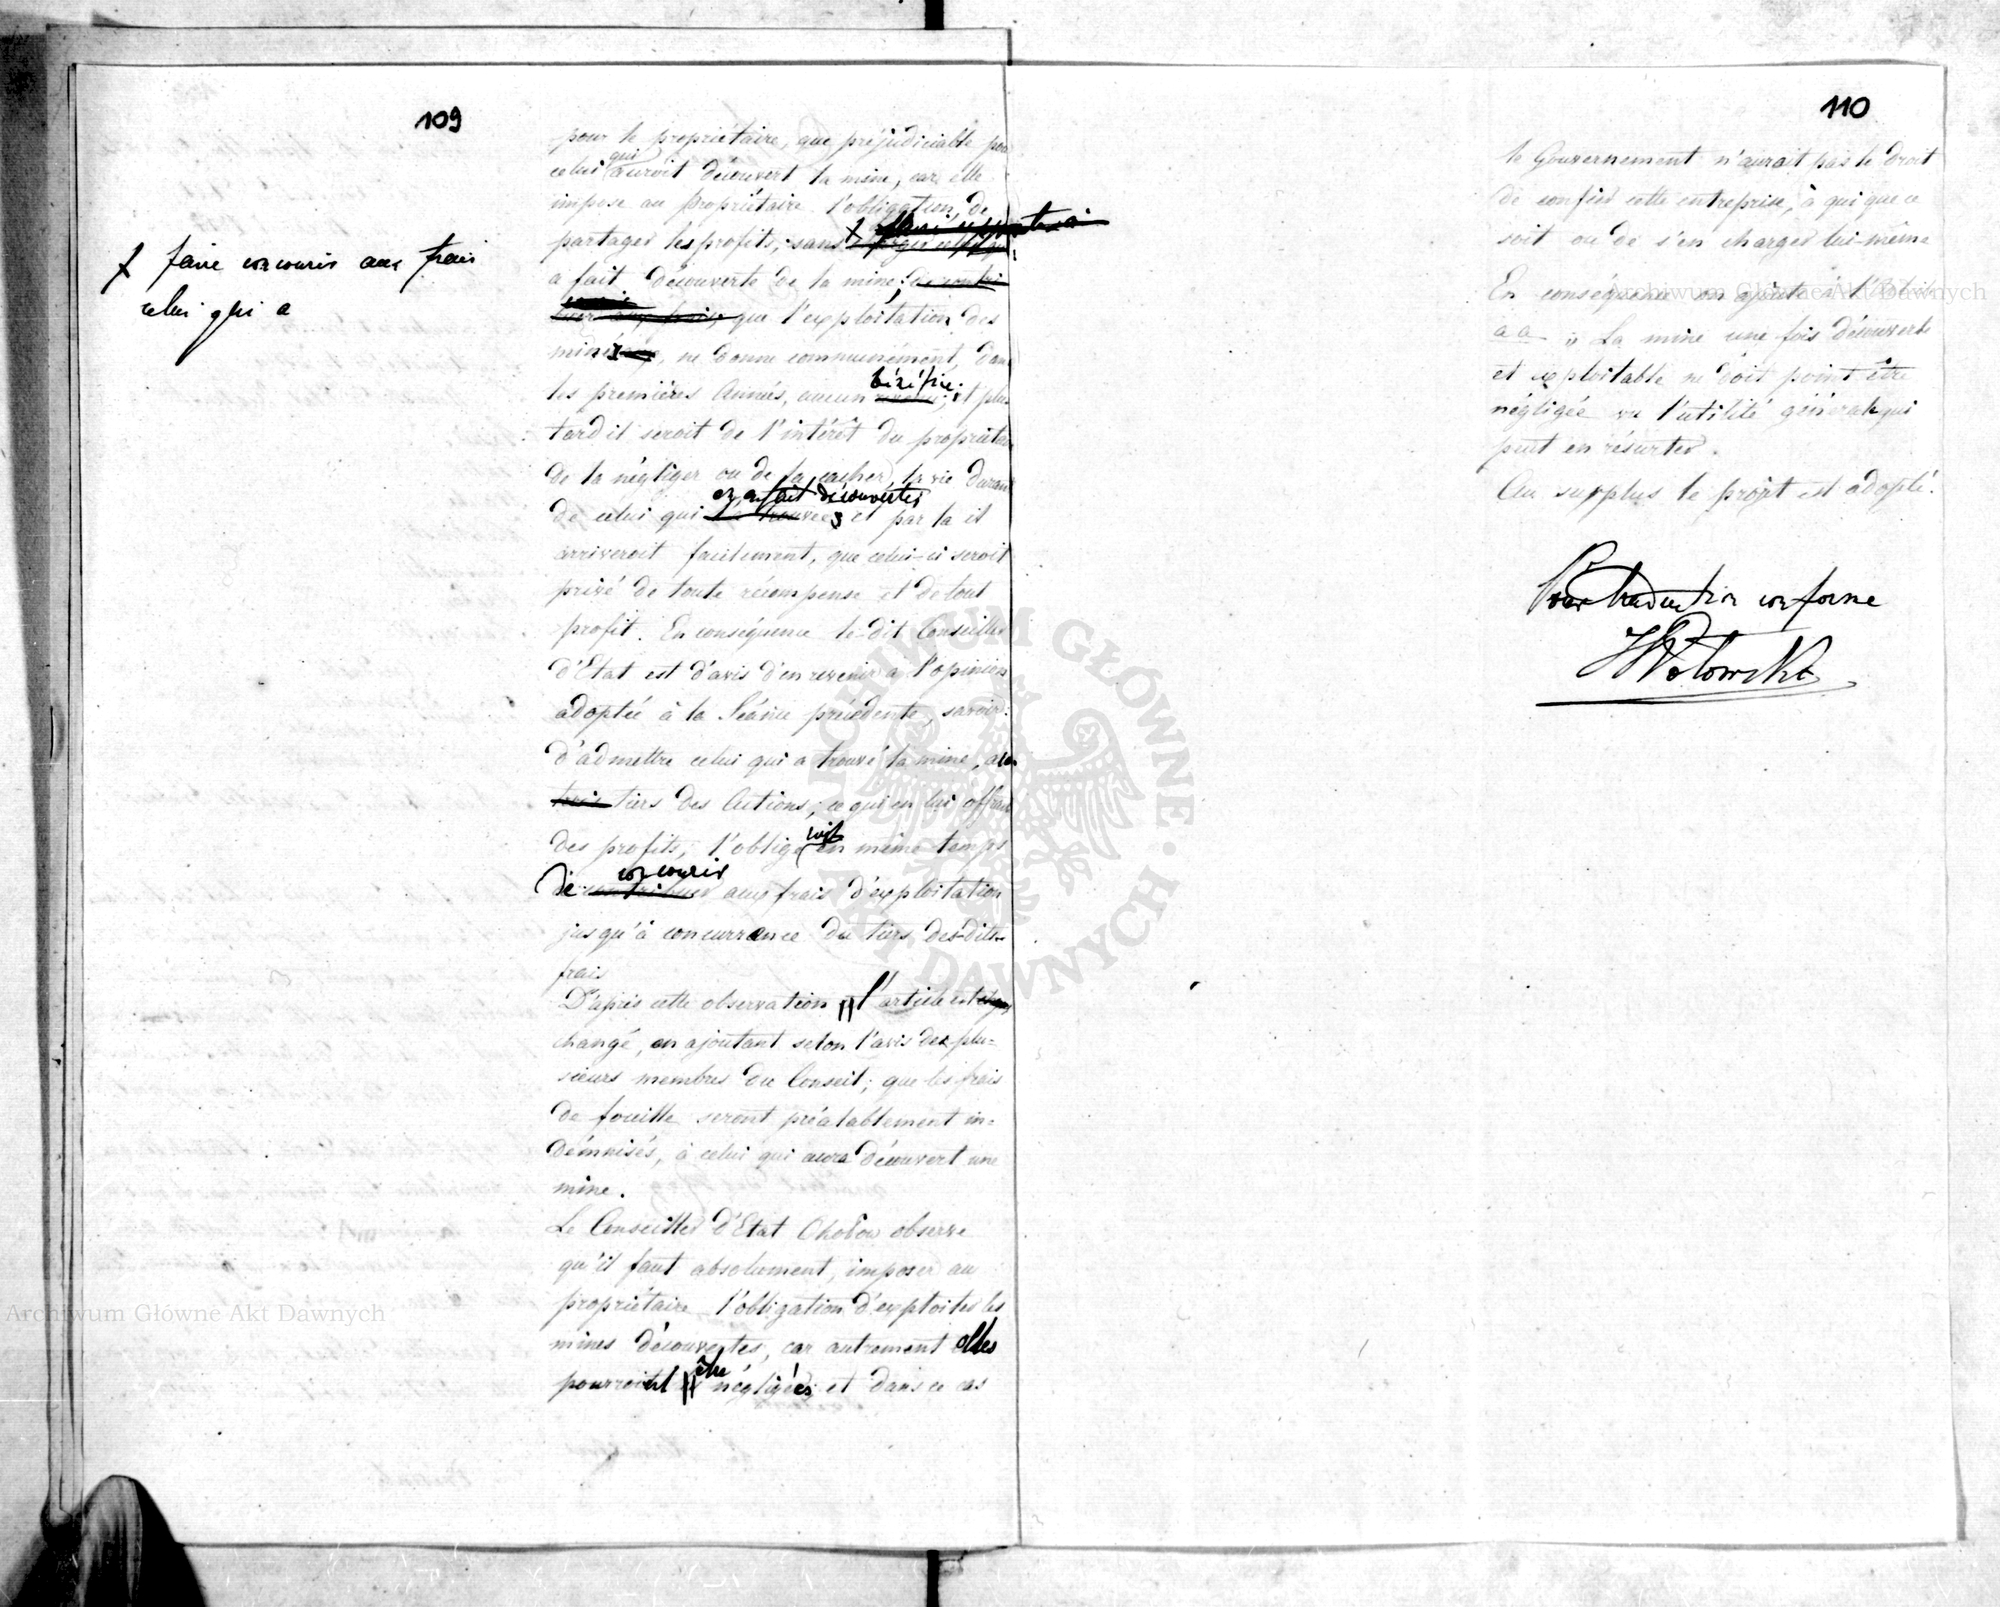 109
pour le propriétaire, que préjudiciable pour
celui qui auroit découvert la mine, car elle
impose au propriétaire l'obligation, de
partager les profits, sans ×
a fait découverte de la mine;
que l'exploitation des
mines, ne donne communément, dans
les premières Années, aucun bénéfice; et plus
tard il seroit de l'intérêt du propriétaire
de la négliger ou de la cacher, la vie durant
de celui qui en a fait découvertes et par la il
arriveroit facilement, que celui-ci seroit
privé de toute récompense et de tout
profit. En conséquence le-dit Conseiller
d'Etat est d'avis d'en revenir à l'opinion
adoptée à la Séance précédente, savoir:
d'admettre celui qui a trouvé la mine, au
tiers des Actions, ce qui en lui offrant
des profits, l'obligeroit en même temps
de concourir aux frais d'exploitation
jusqu'à concurrance du tiers des-dits-
frais
D'après cette observation l'article est
changé, en ajoutant selon l'avis de plu=
sieurs membres du Conseil; que les frais
de fouille seront préalablement in=
démnisés, à celui qui aura découvert une
mine.
Le Conseiller d'Etat Ohodou observe
qu'il faut absolument, imposer au
propriétaire l'obligation d'exploiter les
mines découvertes, car autrement elles
pourroient être négligées; et dans ce cas
× faire concourir aux frais
celui qui a
110
le Gouvernement n'aurait pas le droit
de confier cette entreprise, à qui que ce
soit ou de s'en charger lui-même
En conséquence on ajoute à l'Article
a a " La mine une fois découverte
et exploitable ne doit point être
négligée vu l'utilité générale qui
peut en résulter.
Au surplus le projet est adopté.
Pour traduction conforme
HWolowski